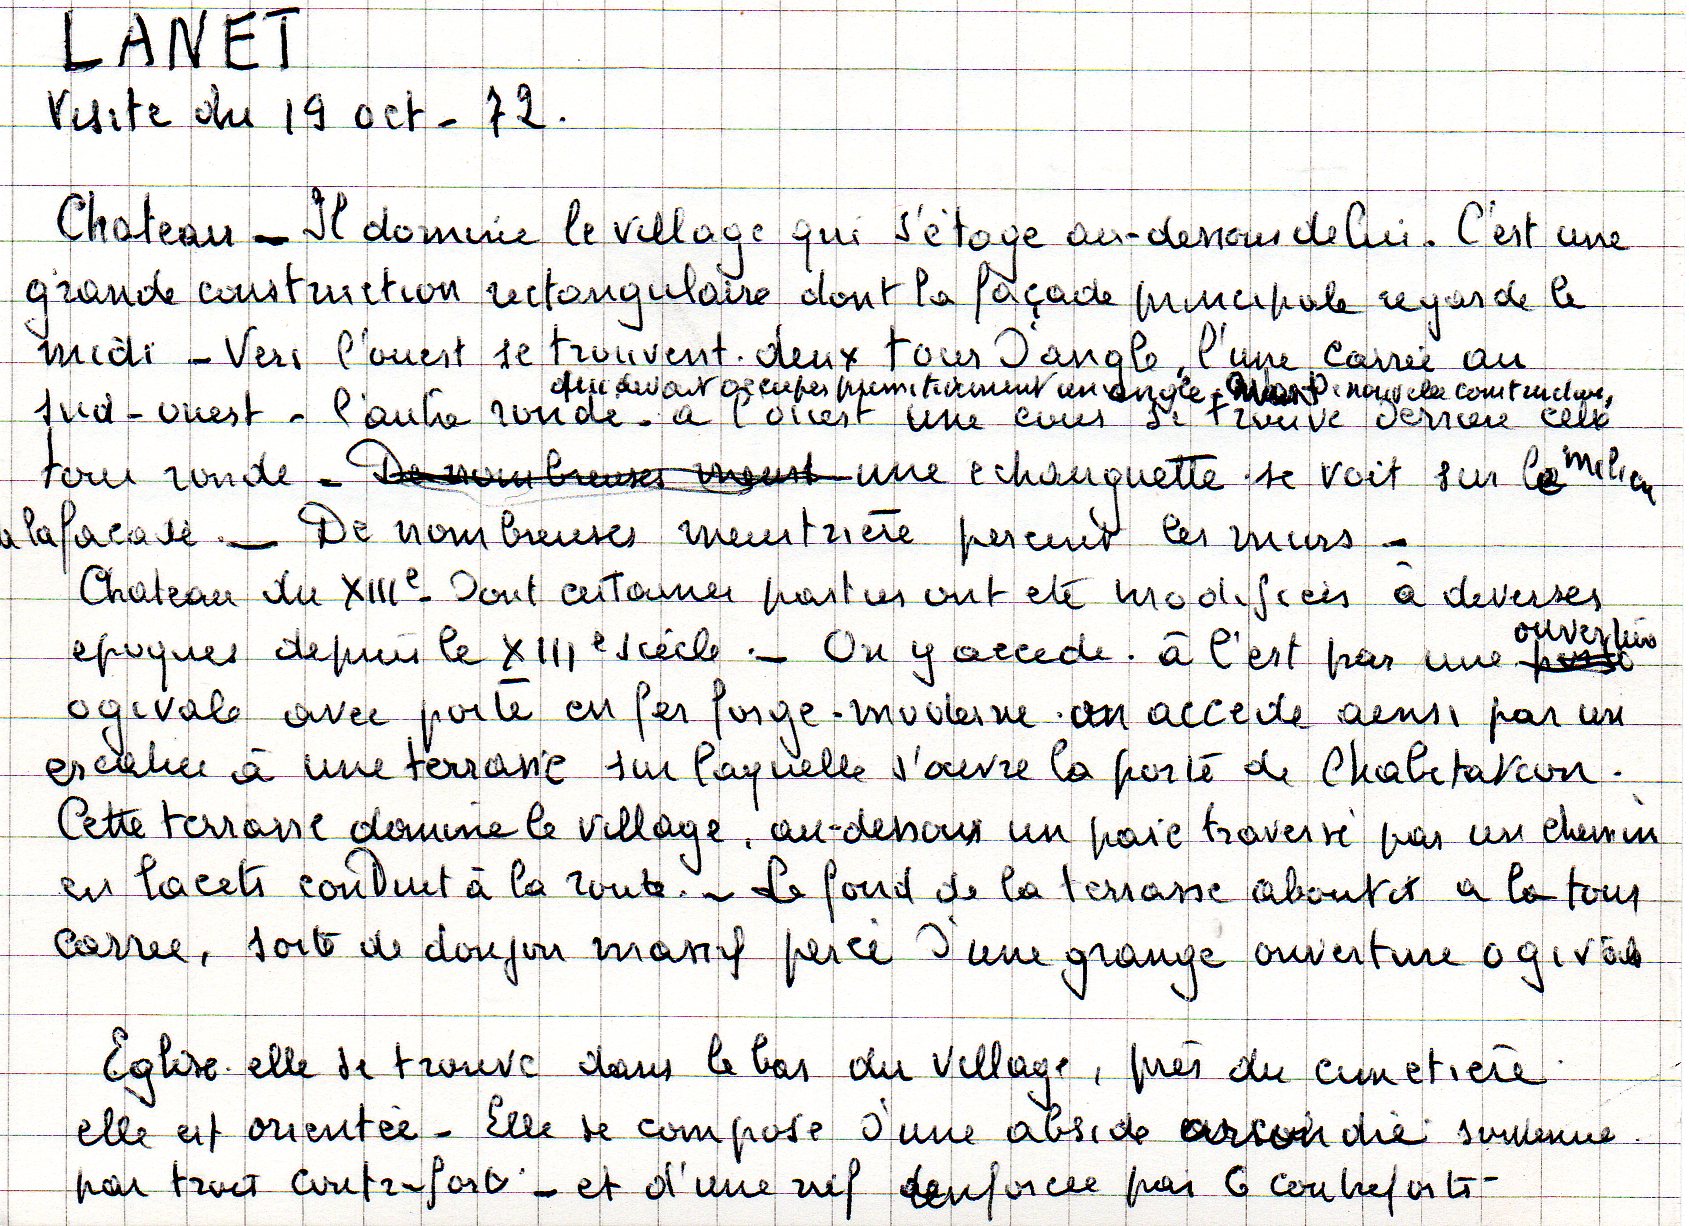 LANET
Visite du 19 oct - 72.
Chateau - Il domine le village qui s'étage au-dessous de lui. C'est une
grande construction rectangulaire dont la façade principale regarde le
midi - Vers l'ouest se trouvent deux tours d'angle, l'une carrée au
qui devait occuper primitivement un angle avant nouvelle construction,
sud-ouest - l'autre ronde - a l'ouest une cour se trouve derrière cette
tour ronde - De nombreuses meust une echauguette se voit sur le milieu
a la façade. - De nombreuses meurtrière percent les murs -
Chateau du XIIIe - Dont certaines parties ont eté modifiées à diverses
epoques depuis le XIIIe siècle. - On y accede à l'est par une ouverture
ogivale avec porte en fer forgé moderne. on accede ainsi par un
escalier à une terrasse sur laquelle s'ouvre la porte de l'habitation.
Cette terrasse domine le village, au-dessous un parc traversé par un chemin
en lacets conduit à la route. - Le fond de la terrasse aboutit a la tour
carree, sorte de donjon massif percé d'une grange ouverture ogivale
Eglise. elle se trouve dans le bas du village, près du cimetière
elle est orientée - Elle se compose d'une abside arrondie soutenue
par trois contre-fort - et d'une nef renforcee par 6 contreforts -